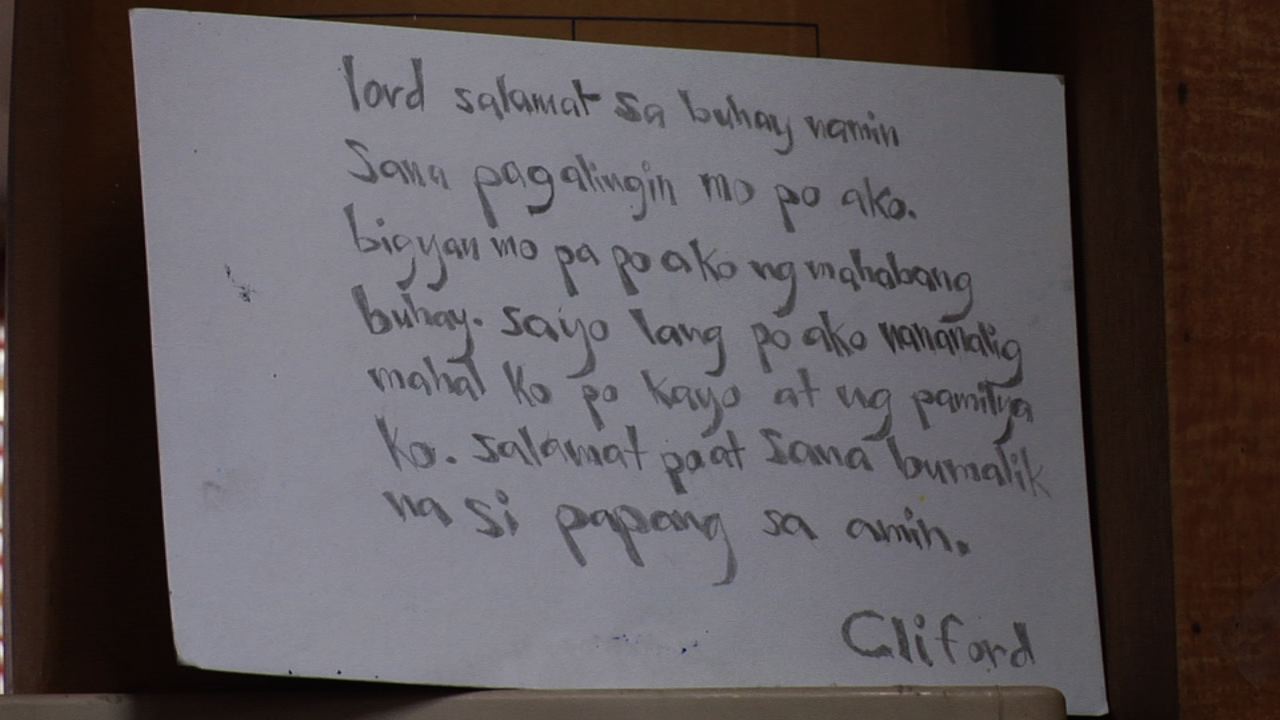 lord salamat sa buhay namin
Sana pagalingin mo po ako.
bigyan mo pa po ako ng mahabang
buhay. sayo lang po ako nananalig
mahal ko po kayo at ng pamilya
ko. salamat po at sana bumalik
na si papang sa amin.
Cliford